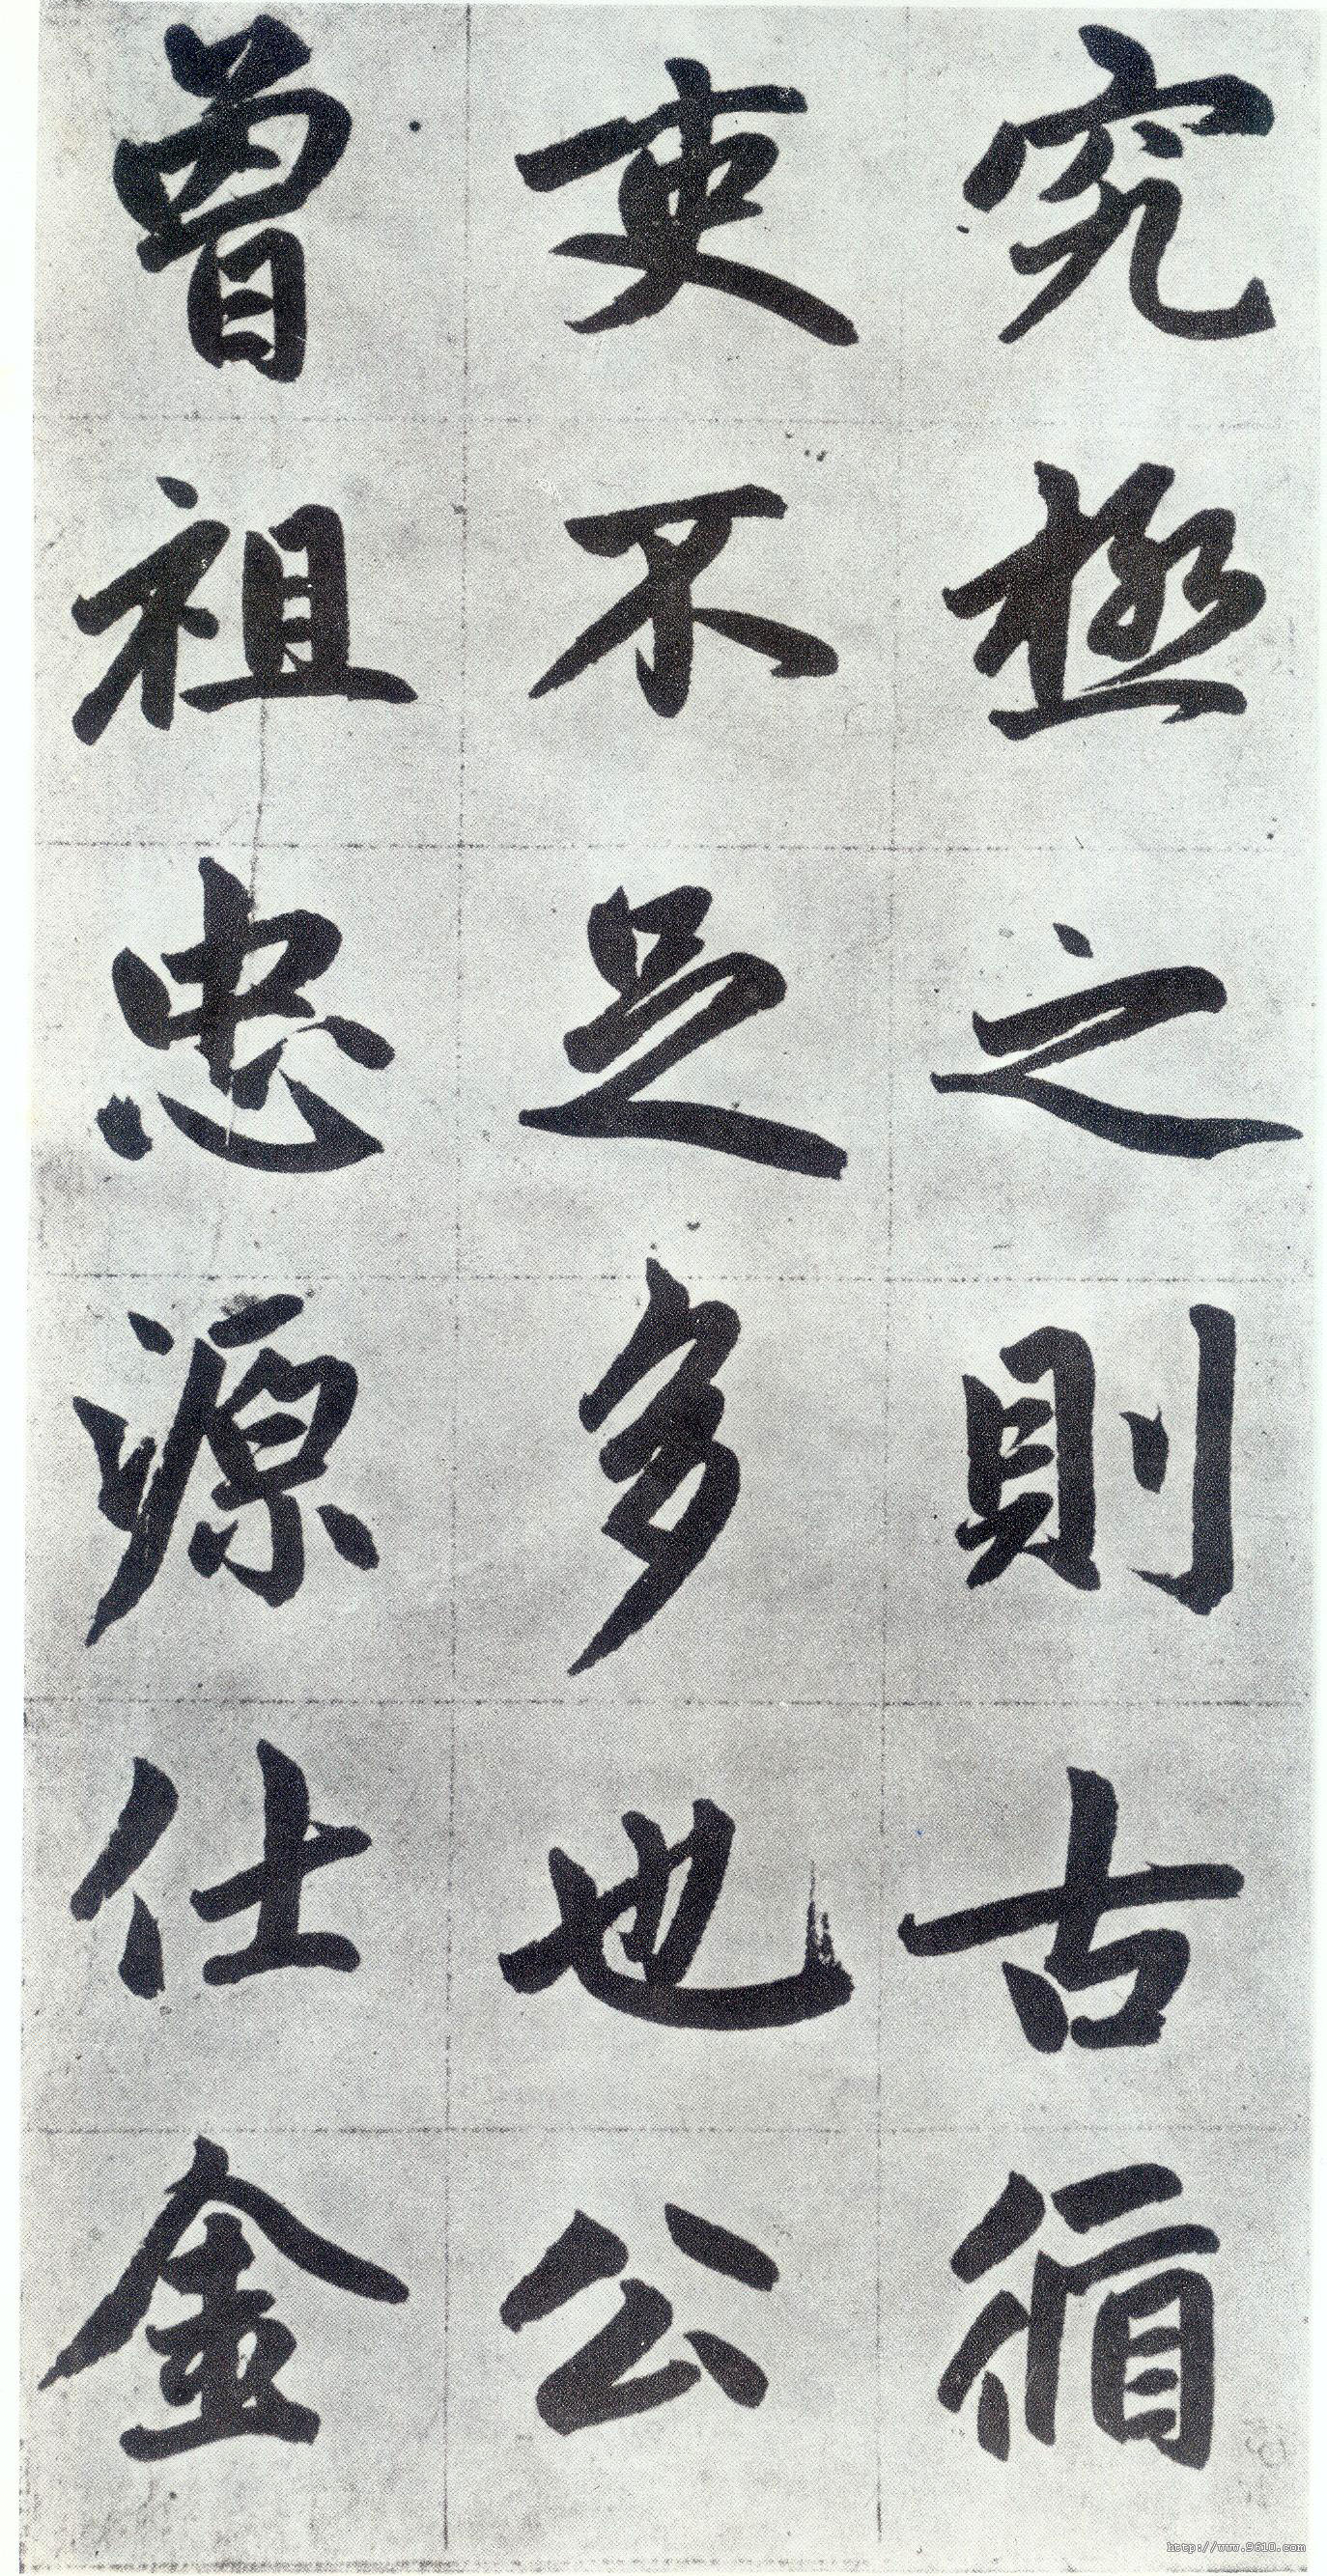 究極之則古循
吏不足多也公
曾祖忠源仕金
http://www.9610.com